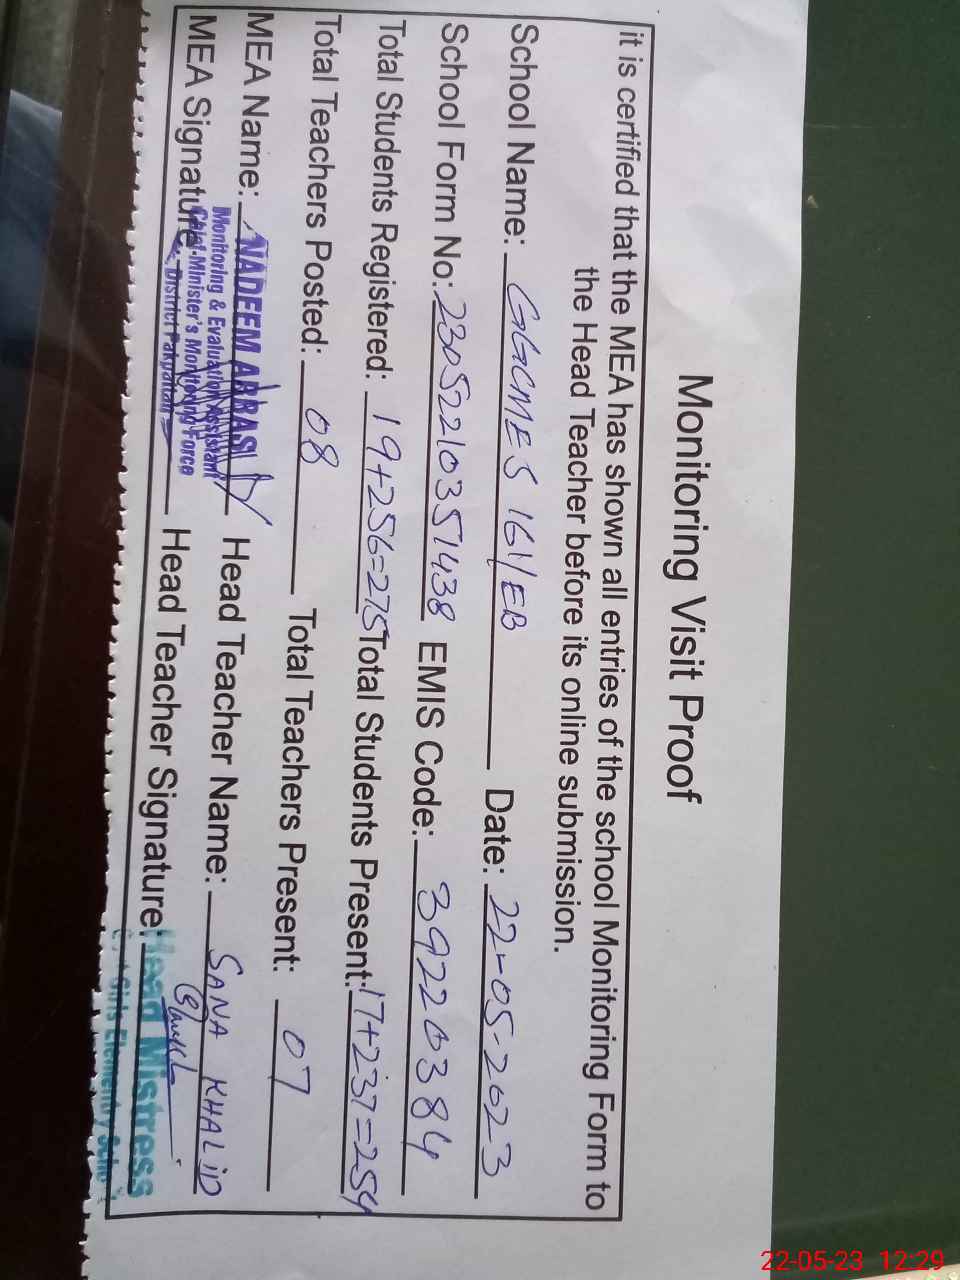 Monitoring Visit Proof
it is certified that the MEA has shown all entries of the school Monitoring Form to
the Head Teacher before its online submission.
School Name: GGCMES 161/EB Date: 22-05-2023
School Form No: 23052210351438 EMIS Code: 39220384
Total Students Registered: 19+256=275 Total Students Present: 17+237=254
Total Teachers Posted: 08 Total Teachers Present: 07
MEA Name: NADEEM ABBASI Head Teacher Name: SANA KHALID
Monitoring & Evaluation Assistant
Chief Minister's Monitoring Force
District Pakpattan
MEA Signature Head Teacher Signature:
Head Mistress
Girls Elementry
22-05-23 12:29